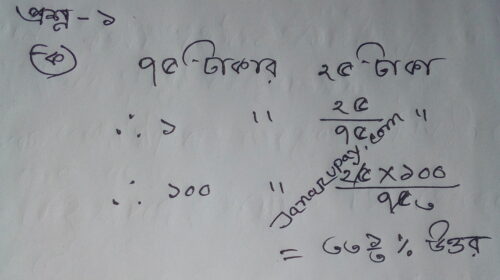 প্রশ্ন - ১
(ক) ৭৫ টাকার ২৫ টাকা
∴ ১ " ২৫/৭৫ "
∴ ১০০ " ২৫ × ১০০/৭৫ ৩
= ৩৩ ১/৩ % উত্তর
Janarupay.com